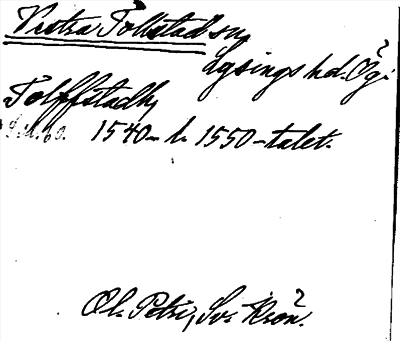 Västra Tollstad sn,
Lysings hd. Ög.
Tolffstadh,
1540- l. 1550-talet.
Ol. Petri, Sv. Krön.